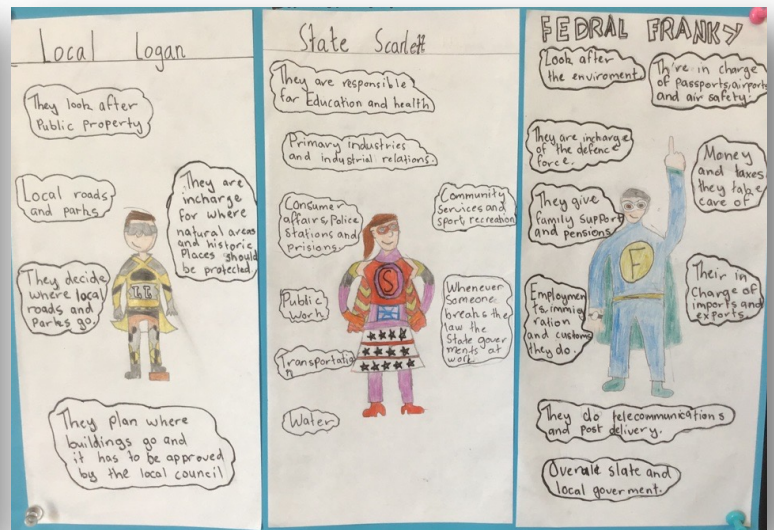 Local Logan
They look after
Public Property
Local roads
and parks.
They are
incharge
for where
natural areas
and historic
Places should
be protected
They decide
where local
roads and
Parks go.
LL
They plan where
buildings go and
it has to be approved
by the local council
State Scarlett
They are responsible
for Education and health
Primary industries
and industrial relations.
Consumer
affairs, Police
Stations and
prisions.
Community
Services and
sport, recreation
S
Public
Work
Whenever
Someone
breaks the
law the
State gover
ments at
work
Transportatio
n
Water
FEDRAL FRANKY
Look after
the enviroment.
Th're in charge
of passports, airports
and air safety.
They are incharge
of the defence
force.
Money
and taxes
they take
care of
They give
family support
and pensions
F
Their in
Charge of
imports and
exports.
Employmen
ts, immig
ration
and customs
they do.
They do telecommunications
and post delivery.
Overale state and
local goverment.